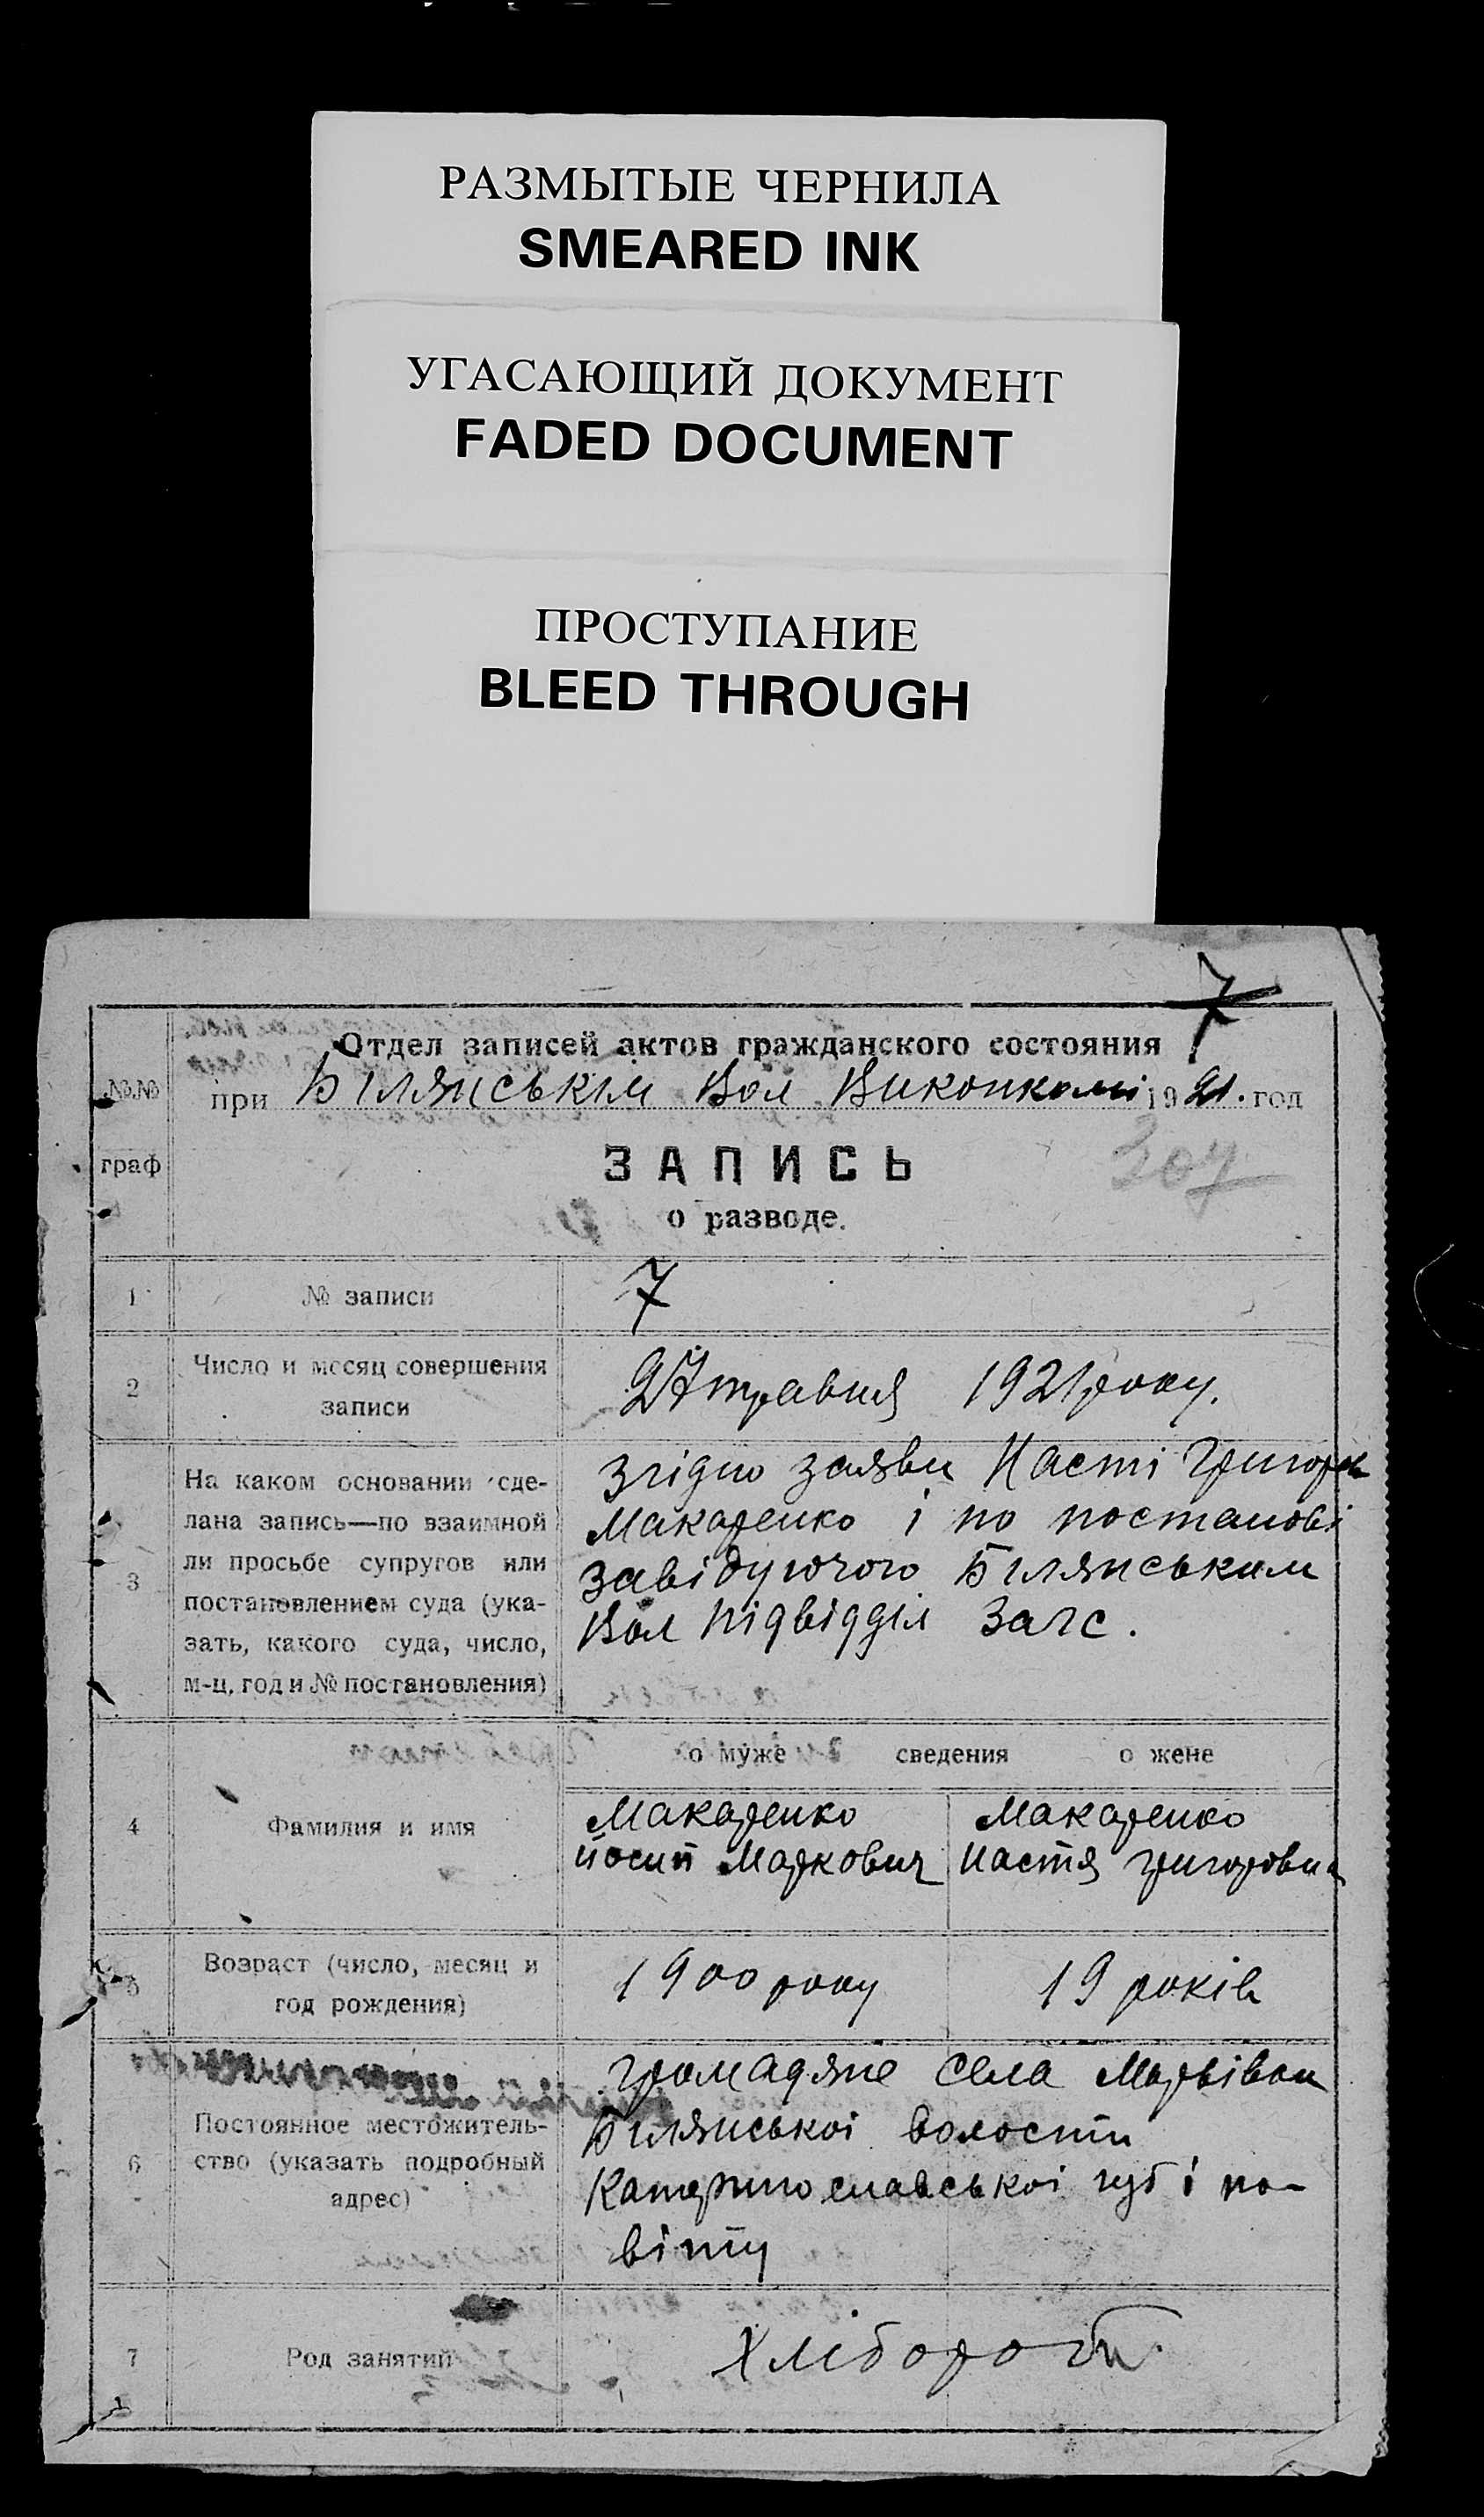 РАЗМЫТЫЕ ЧЕРНИЛА
SMEARED INK
УГАСАЮЩИЙ ДОКУМЕНТ
FADED DOCUMENT
ПРОСТУПАНИЕ
BLEED THROUGH
7
Отдел записей актов гражданского состояния
№№
при Білянськім Вол Виконкомі 1921. год
граф
ЗАПИСЬ
307
о разводе.
1 № записи 7
2 Число и месяц совершения записи
27 травня 1921 року.
3 На каком основании сде-
лана запись—по взаимной
ли просьбе супругов или
постановлением суда (ука-
зать, какого суда, число,
м-ц, год и № постановления)
Згідно заяви Насті Григорів
Макаренко і по постанові
завідуючого Білянським
Вол підвідділ Загс.
о муже сведения о жене
4 Фамилия и имя
Макаренко
йосип Маркович
Макаренко
Настя Григоровна
5 Возраст (число, месяц и
год рождения)
1900 року
19 років
6 Постоянное местожитель-
ство (указать подробный
адрес)
громадяне села Марьівки
Білянськоі волости
Катеринославськоі губ і по-
віту
7 Род занятий
Хлібороби